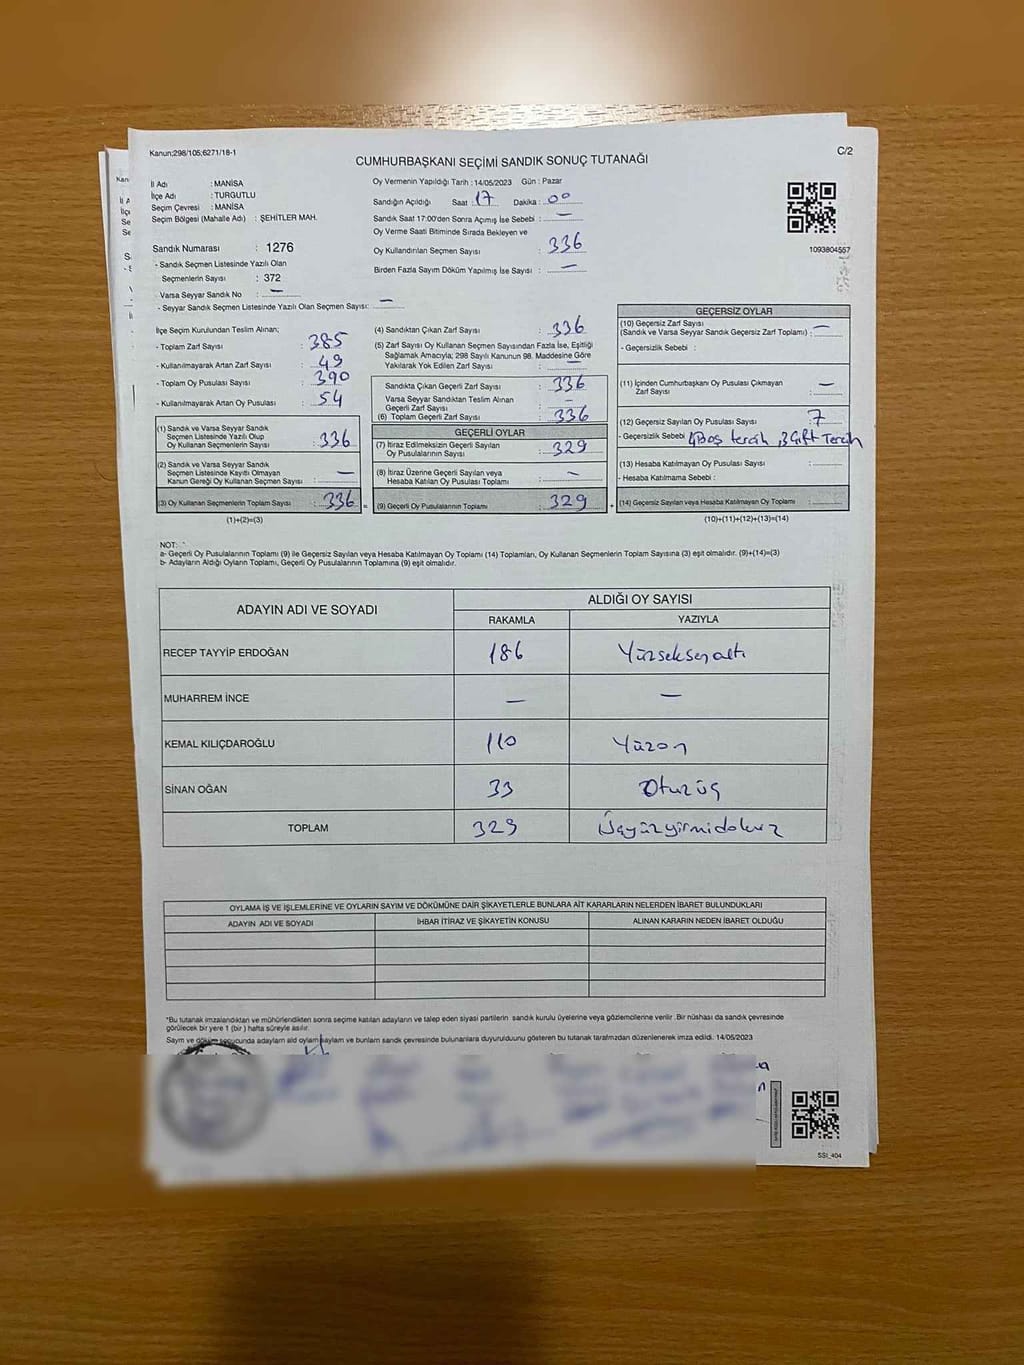 Kanun;298/105;6271/18-1
C/2
CUMHURBAŞKANI SEÇİMİ SANDIK SONUÇ TUTANAĞI
İl Adı : MANİSA
İlçe Adı : TURGUTLU
Seçim Çevresi : MANİSA
Seçim Bölgesi (Mahalle Adı) : ŞEHİTLER MAH.
Sandık Numarası : 1276
- Sandık Seçmen Listesinde Yazılı Olan
Seçmenlerin Sayısı : 372
- Varsa Seyyar Sandık No : —
- Seyyar Sandık Seçmen Listesinde Yazılı Olan Seçmen Sayısı: —
Oy Vermenin Yapıldığı Tarih : 14/05/2023 Gün : Pazar
Sandığın Açıldığı Saat : 17 Dakika : 00
Sandık Saat 17:00'den Sonra Açımış İse Sebebi : —
Oy Verme Saati Bitiminde Sırada Bekleyen ve
Oy Kullandırılan Seçmen Sayısı : 336
Birden Fazla Sayım Döküm Yapılmış İse Sayısı : —
1093804557
İlçe Seçim Kurulundan Teslim Alınan;
- Toplam Zarf Sayısı : 385
- Kullanılmayarak Artan Zarf Sayısı : 49
- Toplam Oy Pusulası Sayısı : 390
- Kullanılmayarak Artan Oy Pusulası : 54
(1) Sandık ve Varsa Seyyar Sandık
Seçmen Listesinde Yazılı Olup
Oy Kullanan Seçmenlerin Sayısı : 336
(2) Sandık ve Varsa Seyyar Sandık
Seçmen Listesinde Kayıtlı Olmayan
Kanun Gereği Oy Kullanan Seçmen Sayısı : —
(3) Oy Kullanan Seçmenlerin Toplam Sayısı : 336
(1)+(2)=(3)
(4) Sandıktan Çıkan Zarf Sayısı : 336
(5) Zarf Sayısı Oy Kullanan Seçmen Sayısından Fazla İse, Eşitliği
Sağlamak Amacıyla; 298 Sayılı Kanunun 98. Maddesine Göre
Yakılarak Yok Edilen Zarf Sayısı : —
Sandıkta Çıkan Geçerli Zarf Sayısı : 336
Varsa Seyyar Sandıktan Teslim Alınan
Geçerli Zarf Sayısı : —
(6) Toplam Geçerli Zarf Sayısı : 336
GEÇERLİ OYLAR
(7) İtiraz Edilmeksizin Geçerli Sayılan
Oy Pusulalarının Sayısı : 329
(8) İtiraz Üzerine Geçerli Sayılan veya
Hesaba Katılan Oy Pusulası Toplamı : —
(9) Geçerli Oy Pusulalarının Toplamı : 329
GEÇERSİZ OYLAR
(10) Geçersiz Zarf Sayısı
(Sandık ve Varsa Seyyar Sandık Geçersiz Zarf Toplamı) : —
- Geçersizlik Sebebi :
(11) İçinden Cumhurbaşkanı Oy Pusulası Çıkmayan
Zarf Sayısı : —
(12) Geçersiz Sayılan Oy Pusulası Sayısı : 7
- Geçersizlik Sebebi : 4 Boş tercih, 3 Çift Tercih
(13) Hesaba Katılmayan Oy Pusulası Sayısı :
- Hesaba Katılmama Sebebi :
(14) Geçersiz Sayılan veya Hesaba Katılmayan Oy Toplamı :
(10)+(11)+(12)+(13)=(14)
NOT:
a- Geçerli Oy Pusulalarının Toplamı (9) ile Geçersiz Sayılan veya Hesaba Katılmayan Oy Toplamı (14) Toplamları, Oy Kullanan Seçmenlerin Toplam Sayısına (3) eşit olmalıdır. (9)+(14)=(3)
b- Adayların Aldığı Oyların Toplamı, Geçerli Oy Pusulalarının Toplamına (9) eşit olmalıdır.
ADAYIN ADI VE SOYADI
ALDIĞI OY SAYISI
RAKAMLA YAZIYLA
RECEP TAYYİP ERDOĞAN 186 Yüzseksenaltı
MUHARREM İNCE — —
KEMAL KILIÇDAROĞLU 110 Yüzon
SİNAN OĞAN 33 Otuzüç
TOPLAM 329 Üçyüzyirmidokuz
OYLAMA İŞ VE İŞLEMLERİNE VE OYLARIN SAYIM VE DÖKÜMÜNE DAİR ŞİKAYETLERLE BUNLARA AİT KARARLARIN NELERDEN İBARET BULUNDUKLARI
ADAYIN ADI VE SOYADI İHBAR İTİRAZ VE ŞİKAYETİN KONUSU ALINAN KARARIN NEDEN İBARET OLDUĞU
*Bu tutanak imzalandıktan ve mühürlendikten sonra seçime katılan adayların ve talep eden siyasi partilerin sandık kurulu üyelerine veya gözlemcilerine verilir .Bir nüshası da sandık çevresinde
görülecek bir yere 1 (bir ) hafta süreyle asılır.
Sayım ve döküm sonucunda adayların aldığı oyların sandık çevresinde bulunanlara duyurulduunu gösteren bu tutanak tarafımızdan düzenlenerek imza edildi. 14/05/2023
SSI_404